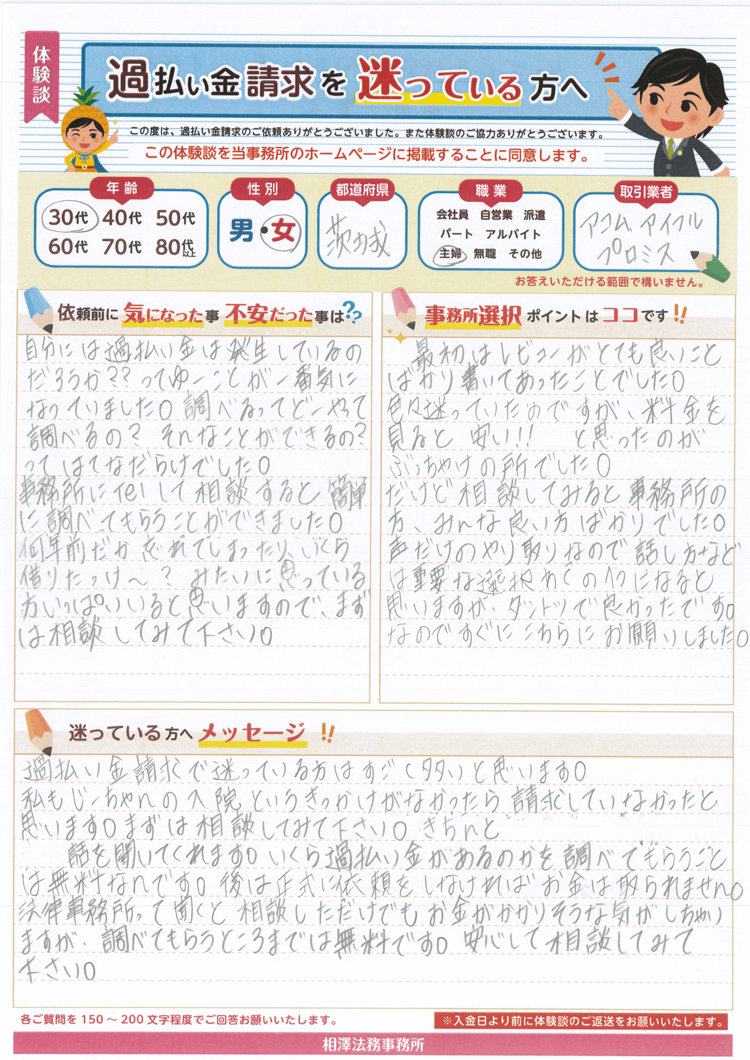 体験談
過払い金請求を迷っている方へ
この度は、過払い金請求のご依頼ありがとうございました。また体験談のご協力ありがとうございます。
この体験談を当事務所のホームページに掲載することに同意します。
年齢
30代 40代 50代
60代 70代 80代以上
性別
男・女
都道府県
茨城
職業
会社員 自営業 派遣
パート アルバイト
主婦 無職 その他
取引業者
アコム アイフル
プロミス
お答えいただける範囲で構いません。
依頼前に気になった事 不安だった事は??
自分には過払い金は発生しているの
だろうか??ってゆーことが一番気に
なっていました。調べるってどーやって
調べるの?そんなことができるの?
ってはてなだらけでした。
事務所にTelして相談すると簡単
に調べてもらうことができました。
何年前だか忘れてしまったり、いくら
借りたっけ〜?みたいに思っている
方いっぱいいると思いますので、まず
は相談してみて下さい。
事務所選択ポイントはココです!!
最初はレビューがとても良いこと
ばかり書いてあったことでした。
色々迷っていたのですが、料金を
見ると安い!! と思ったのが
ぶっちゃけの所でした。
だけど相談してみると事務所の
方、みんな良い方ばかりでした。
声だけのやり取りなので話し方など
は重要な選択めぐの1つになると
思いますが、ダントツで良かったです。
なのですぐにこちらにお願いしました。
迷っている方へメッセージ!!
過払い金請求で迷っている方はすごく多いと思います。
私もじーちゃんの入院というきっかけがなかったら請求していなかったと
思います。まずは相談してみて下さい。きちんと
話を聞いてくれます。いくら過払い金があるのかを調べてもらうこと
は無料なんです。後は正式に依頼をしなければお金は取られません。
法律事務所って聞くと相談しただけでもお金がかかりそうな気がしちゃい
ますが、調べてもらうところまでは無料です。安心して相談してみて
下さい。
各ご質問を150〜200文字程度でご回答お願いいたします。
※入金日より前に体験談のご返送をお願いいたします。
相澤法務事務所